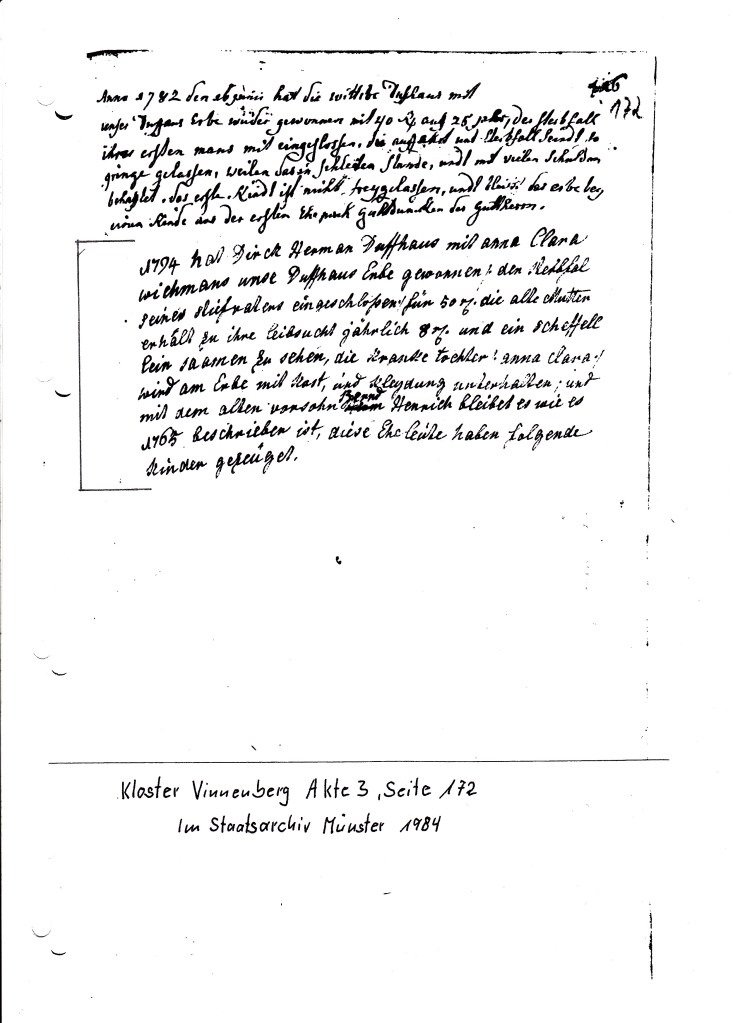 Anno 1782 den 26 junii hat die wittibe Duffhaus mit
unser Duffhaus Erbe wieder gewonnen mit 40 rh auf 25 jahr, der sterbfall
ihres ersten mans mit eingeslossen, die auffahrt und sterbfall seind so
geringe gelassen, weilen das in schlechten stande, undt mit vielen schulden
behafftet. das erste Kindt ist nicht freygelassen, undt das erbe bey
einen Kinde aus der ersten Ehe nach gutdüncken des gutherrn.
126
172
1794 hat Dirck Herman Duffhaus mit anna Clara
wichmans unse Duffhaus Erbe gewonnen! den sterbfal
seines stiefvatens eingeschloßen! für 50 r. die alte Mutter
erhält zu ihre leibzucht jährlich 8 r. und ein scheffell
lein saamen zu sehen, die Krancke tochter! anna Clara!
wird am Erbe mit Kost, und Kleydung unterhalten; und
mit dem alten vorsohn Bernd Henrich bleibet es wie es
1765 beschrieben ist, diese Eheleüte haben folgende
Kinder gezeüget.
Kloster Vinnenberg Akte 3, Seite 172
Im Staatsarchiv Münster 1984